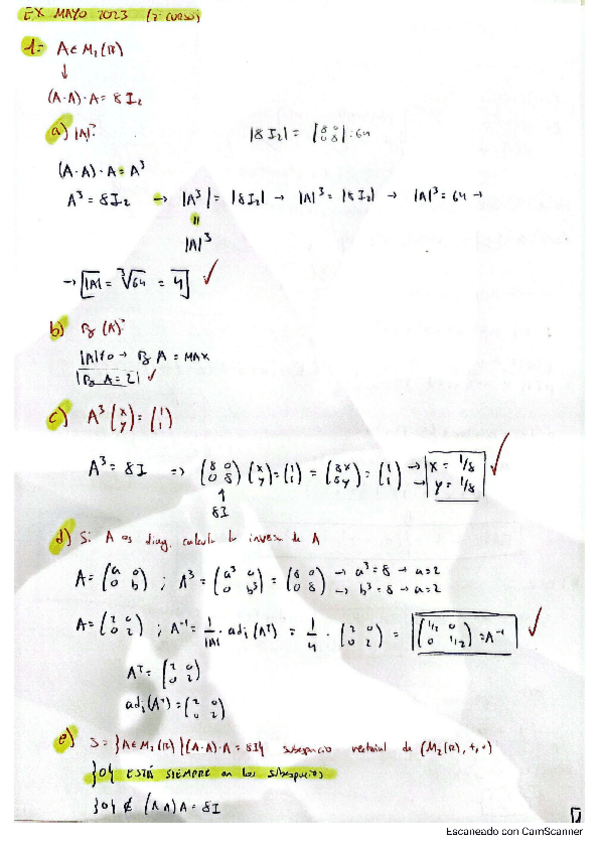 EX MAYO 2023 (2º CURSO)
1= A∈M₂(R)
↓
(A·A)·A = 8I₂
a) |A|?
|8I₂| = |8 0; 0 8| : 64
(A·A)·A = A³
A³ = 8I₂ → |A³| = |8I₂| → |A|³ = |8I₂| → |A|³ = 64 →
"
|A|³
→ |A| = ∛64 = 4 ✓
b) Rg (A)?
|A|≠0 → Rg A = MAX
Rg A = 2 ✓
c) A³ (x; y) = (1; 1)
A³ = 8I => (8 0; 0 8) (x; y) = (1; 1) = (8x; 8y) = (1; 1) → x = 1/8 → y = 1/8 ✓
↑
8I
d) Si A es diag. calcula la inversa de A
A = (a 0; 0 b) ; A³ = (a³ 0; 0 b³) = (8 0; 0 8) → a³ = 8 → a = 2 → b³ = 8 → a = 2
A = (2 0; 0 2) ; A⁻¹ = 1/|A| · adj (Aᵀ) = 1/4 · (2 0; 0 2) = (1/2 0; 0 1/2) = A⁻¹ ✓
Aᵀ = (2 0; 0 2)
adj (Aᵀ) = (2 0; 0 2)
e) S = }A∈M₂(R) }(A·A)·A = 8I{ subespacio vectorial de (M₂(R), +, ·)
}0{ ESTÁ SIEMPRE en los subespacios
}0{ ∉ (A A) A = 8I
Escaneado con CamScanner